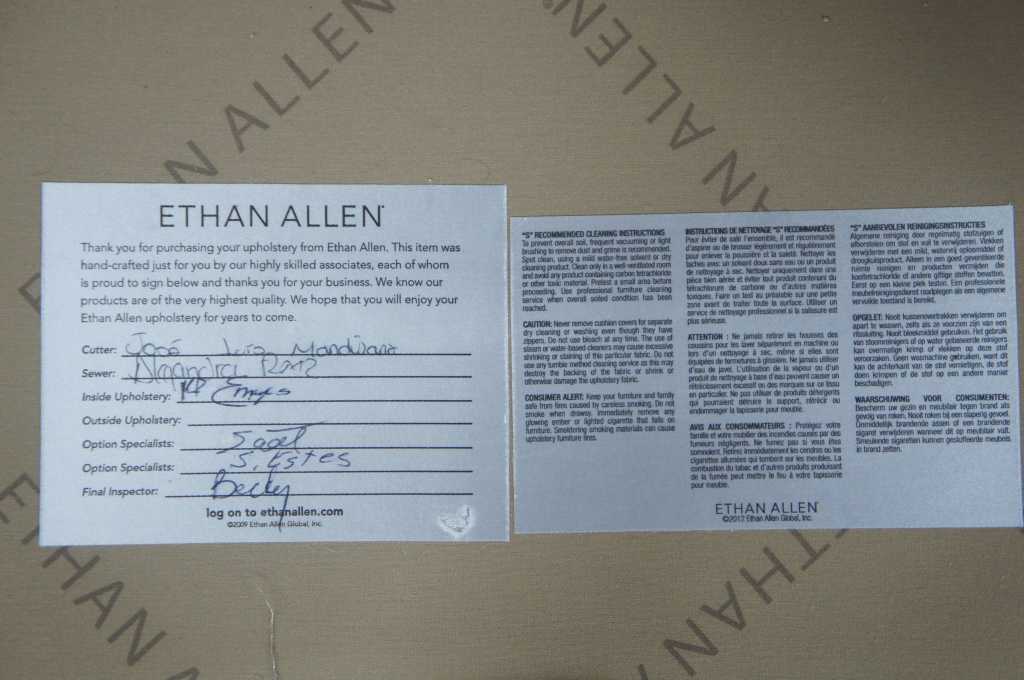 ETHAN ALLEN
ETHAN ALLEN
ETHAN ALLEN
Thank you for purchasing your upholstery from Ethan Allen. This item was
hand-crafted just for you by our highly skilled associates, each of whom
is proud to sign below and thanks you for your business. We know our
products are of the very highest quality. We hope that you will enjoy your
Ethan Allen upholstery for years to come.
Cutter: José Luis
Sewer: Alejandra
Inside Upholstery:
Outside Upholstery:
Option Specialists:
Option Specialists: S. Estes
Final Inspector: Becky
log on to ethanallen.com
©2009 Ethan Allen Global, Inc.
"S" RECOMMENDED CLEANING INSTRUCTIONS
To prevent overall soil, frequent vacuuming or light
brushing to remove dust and grime is recommended.
Spot clean, using a mild water-free solvent or dry
cleaning product. Clean only in a well-ventilated room
and avoid any product containing carbon tetrachloride
or other toxic material. Pretest a small area before
proceeding. Use professional furniture cleaning
service when overall soiled condition has been
reached.
CAUTION: Never remove cushion covers for separate
dry cleaning or washing even though they have
zippers. Do not use bleach at any time. The use of
steam or water-based cleaners may cause excessive
shrinking or staining of this particular fabric. Do not
use any tumble method cleaning service as this may
destroy the backing of the fabric or shrink or
otherwise damage the upholstery fabric.
CONSUMER ALERT: Keep your furniture and family
safe from fires caused by careless smoking. Do not
smoke when drowsy, immediately remove any
glowing ember or lighted cigarette that falls on
furniture. Smoldering smoking materials can cause
upholstery furniture fires.
INSTRUCTIONS DE NETTOYAGE "S" RECOMMANDÉES
Pour éviter de salir l'ensemble, il est recommandé
d'aspirer ou de brosser légèrement et régulièrement
pour enlever la poussière et la saleté. Nettoyer les
taches avec un solvant doux sans eau ou un produit
de nettoyage à sec. Nettoyer uniquement dans une
pièce bien aérée et éviter tout produit contenant du
tétrachlorure de carbone ou d'autres matières
toxiques. Faire un test au préalable sur une petite
zone avant de traiter toute la surface. Utiliser un
service de nettoyage professionnel si la salissure est
plus sérieuse.
ATTENTION : Ne jamais retirer les housses des
coussins pour les laver séparément en machine ou
lors d'un nettoyage à sec, même si elles sont
équipées de fermetures à glissière. Ne jamais utiliser
d'eau de javel. L'utilisation de la vapeur ou d'un
produit de nettoyage à base d'eau peuvent causer un
rétrécissement excessif ou des marques sur ce tissu
en particulier. Ne pas utiliser de produits détergents
qui pourraient détruire le support, rétrécir ou
endommager la tapisserie pour meuble.
AVIS AUX CONSOMMATEURS : Protégez votre
famille et votre mobilier des incendies causés par des
fumeurs négligents. Ne fumez pas si vous êtes
somnolent. Retirez immédiatement les cendres ou les
cigarettes allumées qui tombent sur les meubles. La
combustion du tabac et d'autres produits produisant
de la fumée peut mettre le feu à votre tapisserie
pour meuble.
"S" AANBEVOLEN REINIGINGSINSTRUCTIES
Algemene reiniging door regelmatig stofzuigen of
afborstelen om stof en vuil te verwijderen. Vlekken
verwijderen met een mild, watervrij oplosmiddel of
droogkuisproduct. Alleen in een goed geventileerde
ruimte reinigen en producten vermijden die
koolstoftetrachloride of andere giftige stoffen bevatten.
Eerst op een kleine plek testen. Een professionele
meubelreinigingsdienst raadplegen als een algemene
vervuilde toestand is bereikt.
OPGELET: Nooit kussenovertrekken verwijderen om
apart te wassen, zelfs als ze voorzien zijn van een
ritssluiting. Nooit bleekmiddel gebruiken. Het gebruik
van stoomreinigers of op water gebaseerde reinigers
kan overmatige krimp of vlekken op deze stof
veroorzaken. Geen wasmachine gebruiken, want dit
kan de achterkant van de stof vernietigen, de stof
doen krimpen of de stof op een andere manier
beschadigen.
WAARSCHUWING VOOR CONSUMENTEN:
Bescherm uw gezin en meubilair tegen brand als
gevolg van roken. Nooit roken bij een slaperig gevoel.
Onmiddellijk brandende assen of een brandende
sigaret verwijderen wanneer dit op meubilair valt.
Smeulende sigaretten kunnen gestoffeerde meubels
in brand zetten.
ETHAN ALLEN
©2012 Ethan Allen Global, Inc.
ETHAN
ETHAN